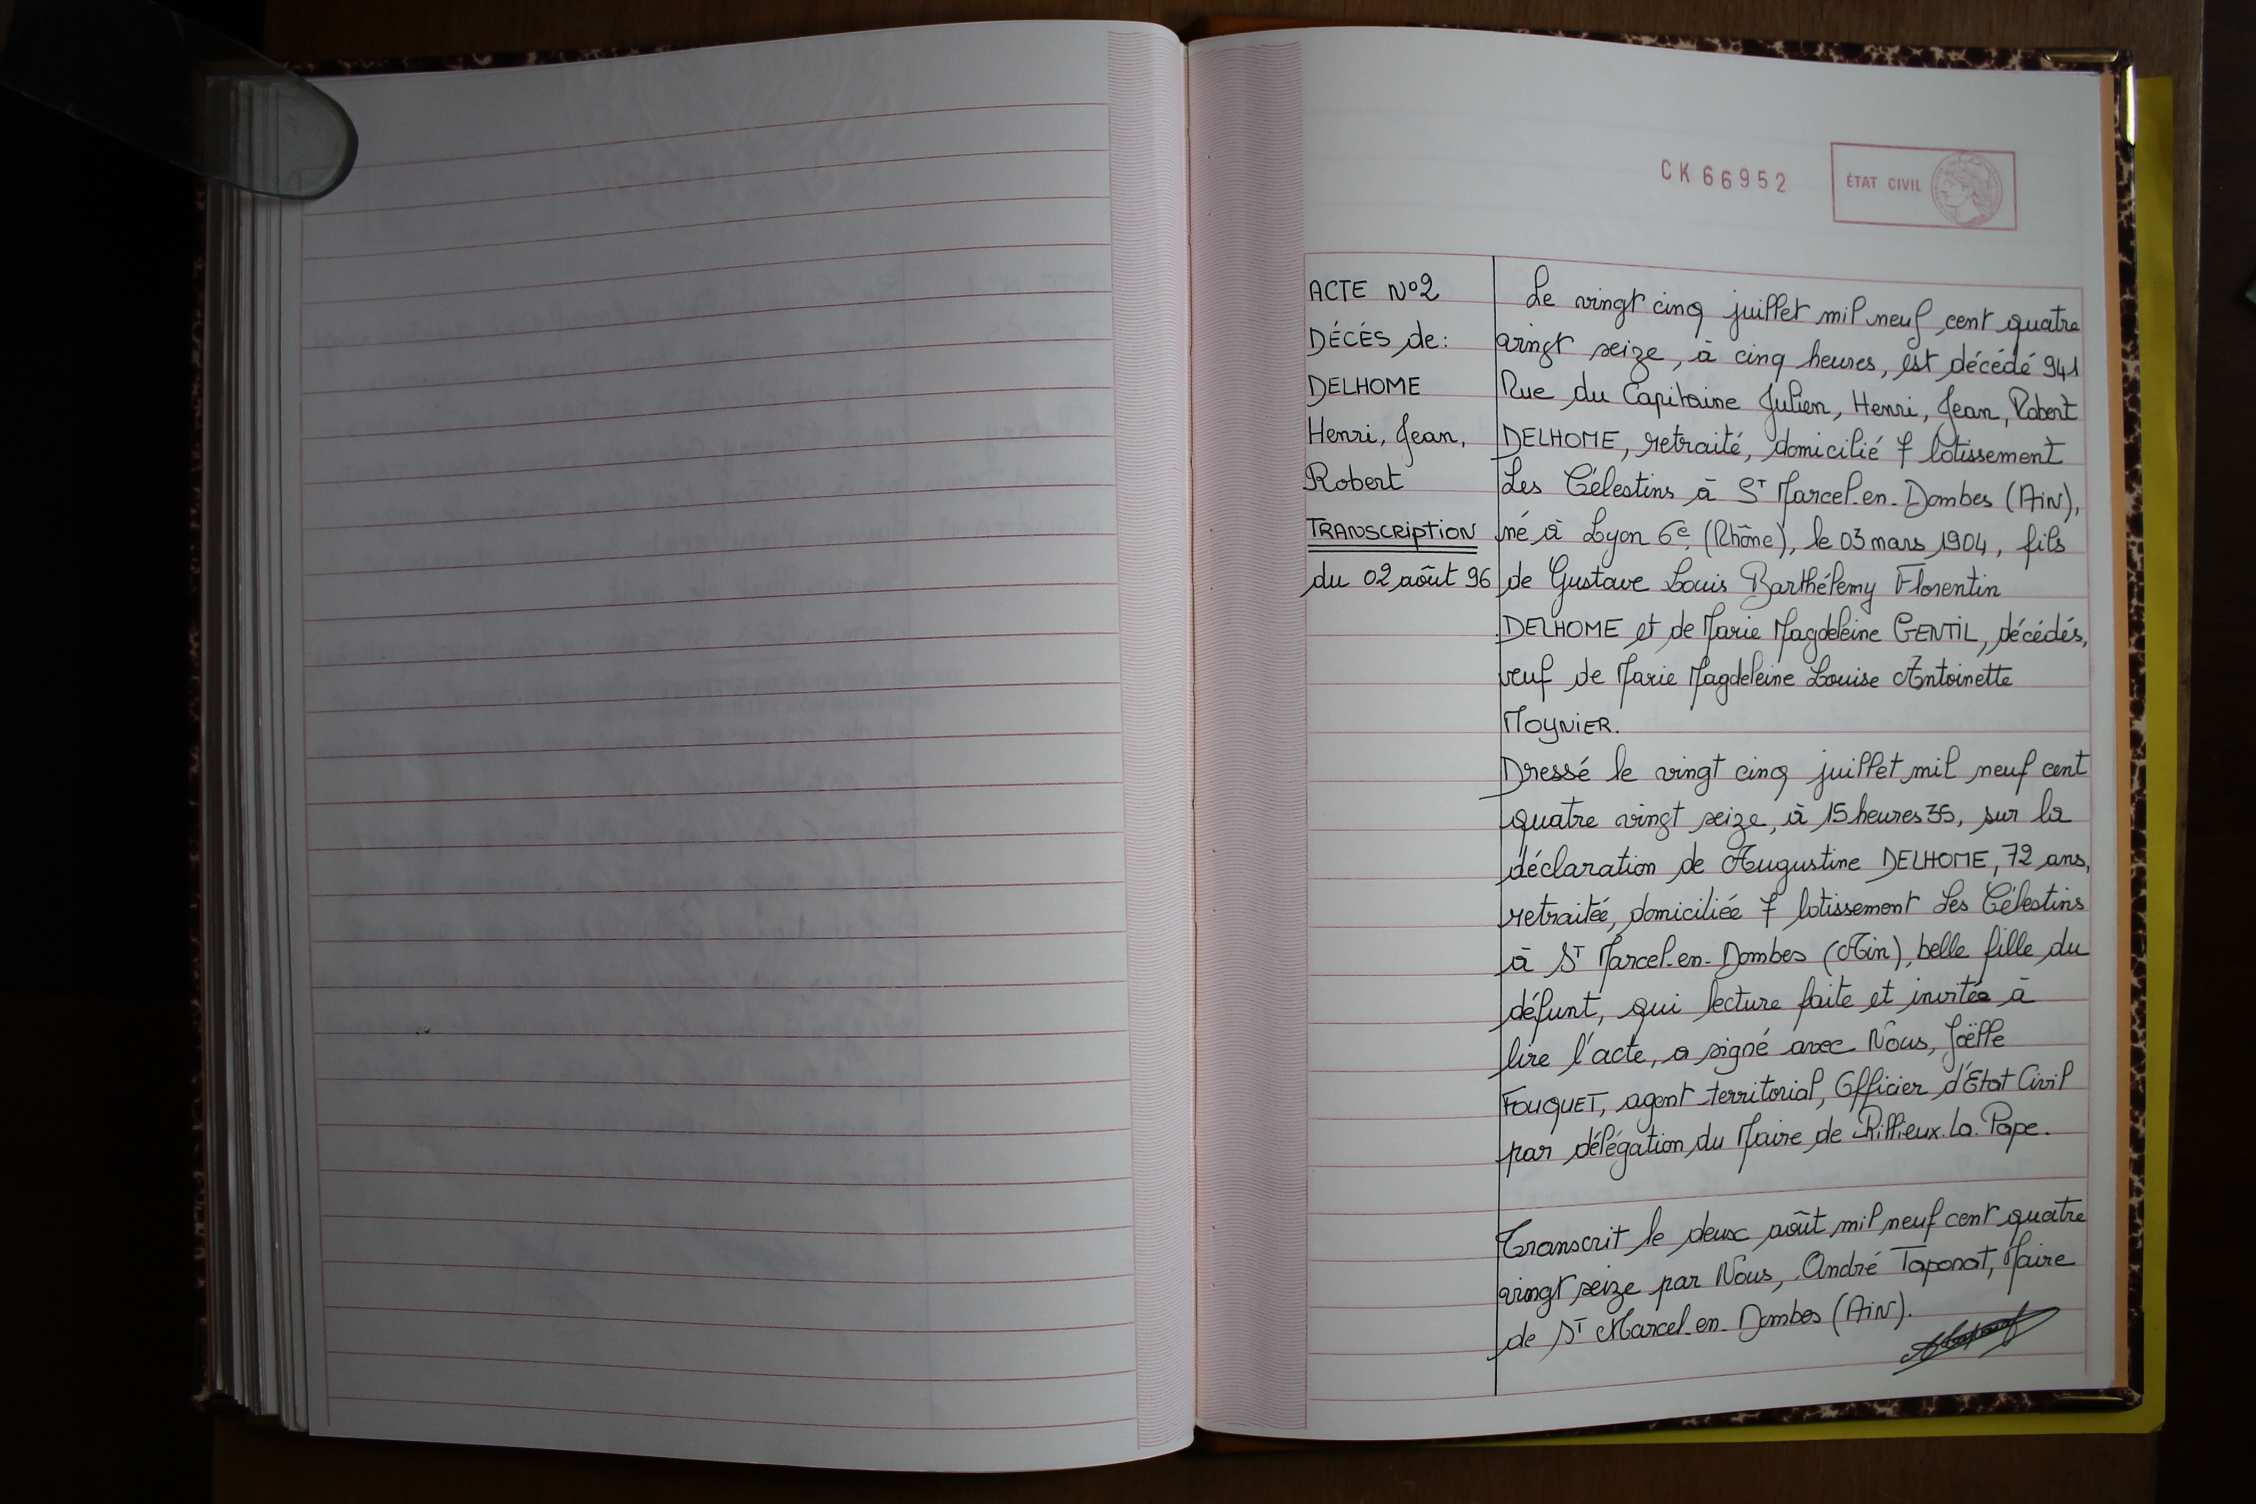 CK 66952
ÉTAT CIVIL
ACTE N°2
DÉCÉS de:
DELHOME
Henri, Jean,
Robert
TRANSCRIPTION
du 02 août 96
Le vingt cinq juillet mil neuf cent quatre
vingt seize, à cinq heures, est décédé 941
Rue du Capitaine Julien, Henri, Jean, Robert
DELHOME, retraité, domicilié 7 lotissement
Les Célestins à ST Marcel-en-Dombes (AIN),
né à Lyon 6e (Rhône), le 03 mars 1904, fils
de Gustave Louis Barthélemy Florentin
DELHOME et de Marie Magdeleine GENTIL, décédés,
veuf de Marie Magdeleine Louise Antoinette
MOYNIER.
Dressé le vingt cinq juillet mil neuf cent
quatre vingt seize, à 15 heures 35, sur la
déclaration de Augustine DELHOME, 72 ans,
retraitée, domiciliée 7 lotissement Les Célestins
à ST Marcel-en-Dombes (Ain), belle fille du
défunt, qui lecture faite et invitée à
lire l'acte, a signé avec Nous, Joëlle
FOUQUET, agent territorial, Officier d'Etat Civil
par délégation du Maire de Rillieux-La-Pape.
Transcrit le deux août mil neuf cent quatre
vingt seize par Nous, André Taponat, Maire
de ST Marcel-en-Dombes (AIN).